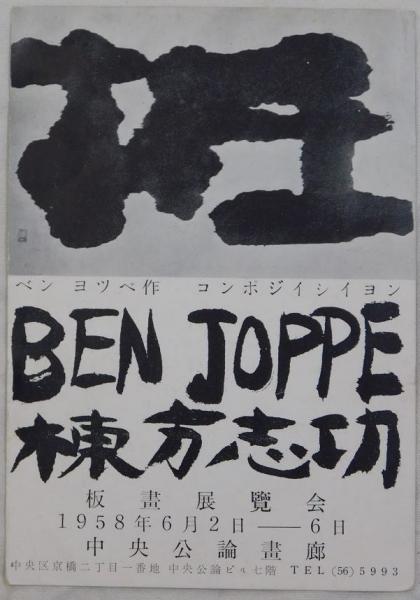 ベン ヨツペ作 コンポジイシイヨン
BEN JOPPE
棟方志功
板畫展覽会
1958年6月2日——6日
中央公論畫廊
中央区京橋二丁目一番地 中央公論ビル七階 TEL (56) 5993